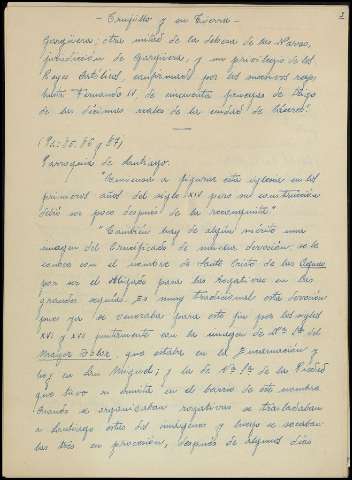 3
- Trujillo y su Tierra -
Garguera; otra mitad de la dehesa de las Navas,
jurisdicción de Garguera, y un privilegio de los
Reyes Católicos, confirmado por los sucesivos reyes
hasta Fernando IV, de cincuenta fanegas de trigo
de las décimas reales de la ciudad de Cáceres".
(Pá: 85, 86 y 87)
Parroquia de Santiago.
"Comienza a figurar esta iglesia en los
primeros años del siglo XIV pero su construcción
debió ser poco después de la reconquista".
"También hay de algún mérito una
imagen del Crucificado de mucha devoción: se le
conoce con el nombre de Santo Cristo de las Aguas,
por ser el Abogado para las Rogativas en las
grandes sequías. Es muy tradicional esta devoción
pues ya se veneraba para este fin por los siglos
XVI y XVII juntamente con la imagen de Nª Sª del
Mayor Dolor, que estaba en el Encarnación y
hoy en San Miguel; y la de Nª Sª de la Piedad
que tuvo su ermita en el barrio de este nombre.
Cuando se organizaban rogativas se trasladaban
a Santiago estas dos imágenes y luego se sacaban
las tres en procesión, después de algunos días